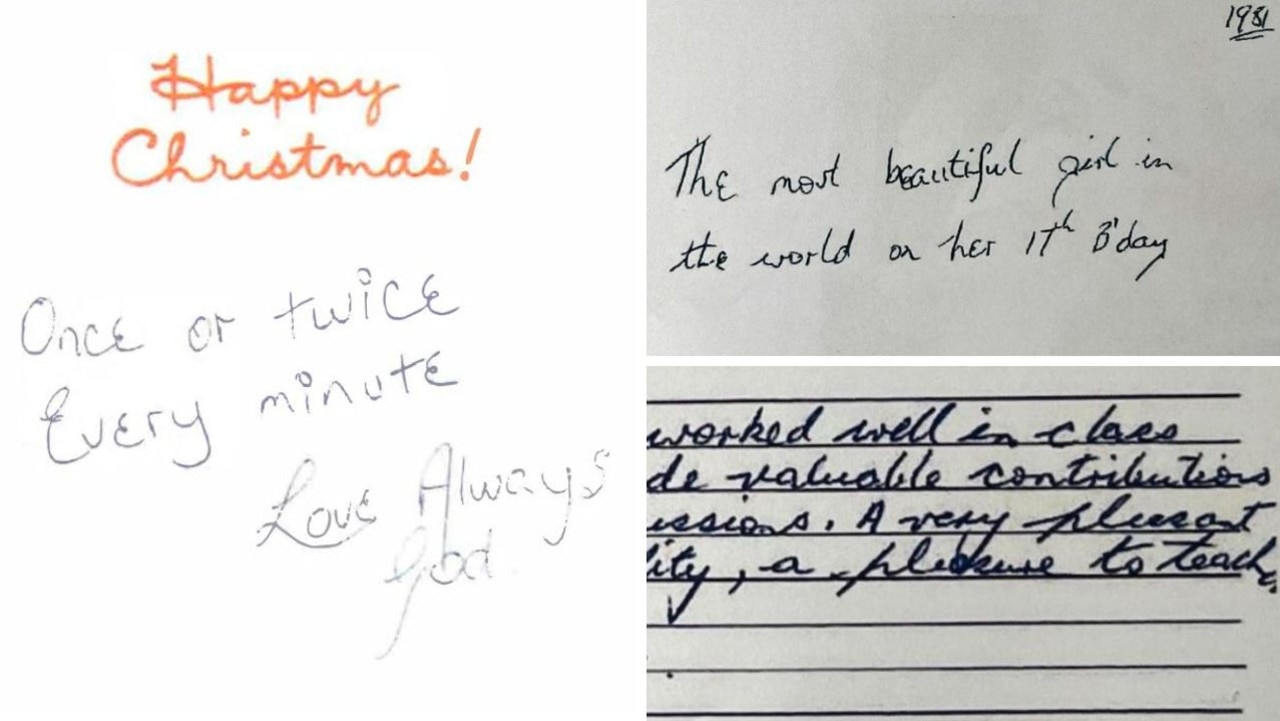 Happy
Christmas!
Once or twice
Every minute
Love Always
God.
1981
The most beautiful girl in
the world on her 17th B'day
worked well in class
de valuable contributions
ussions. A very pleasant
lity, a pleasure to teach.